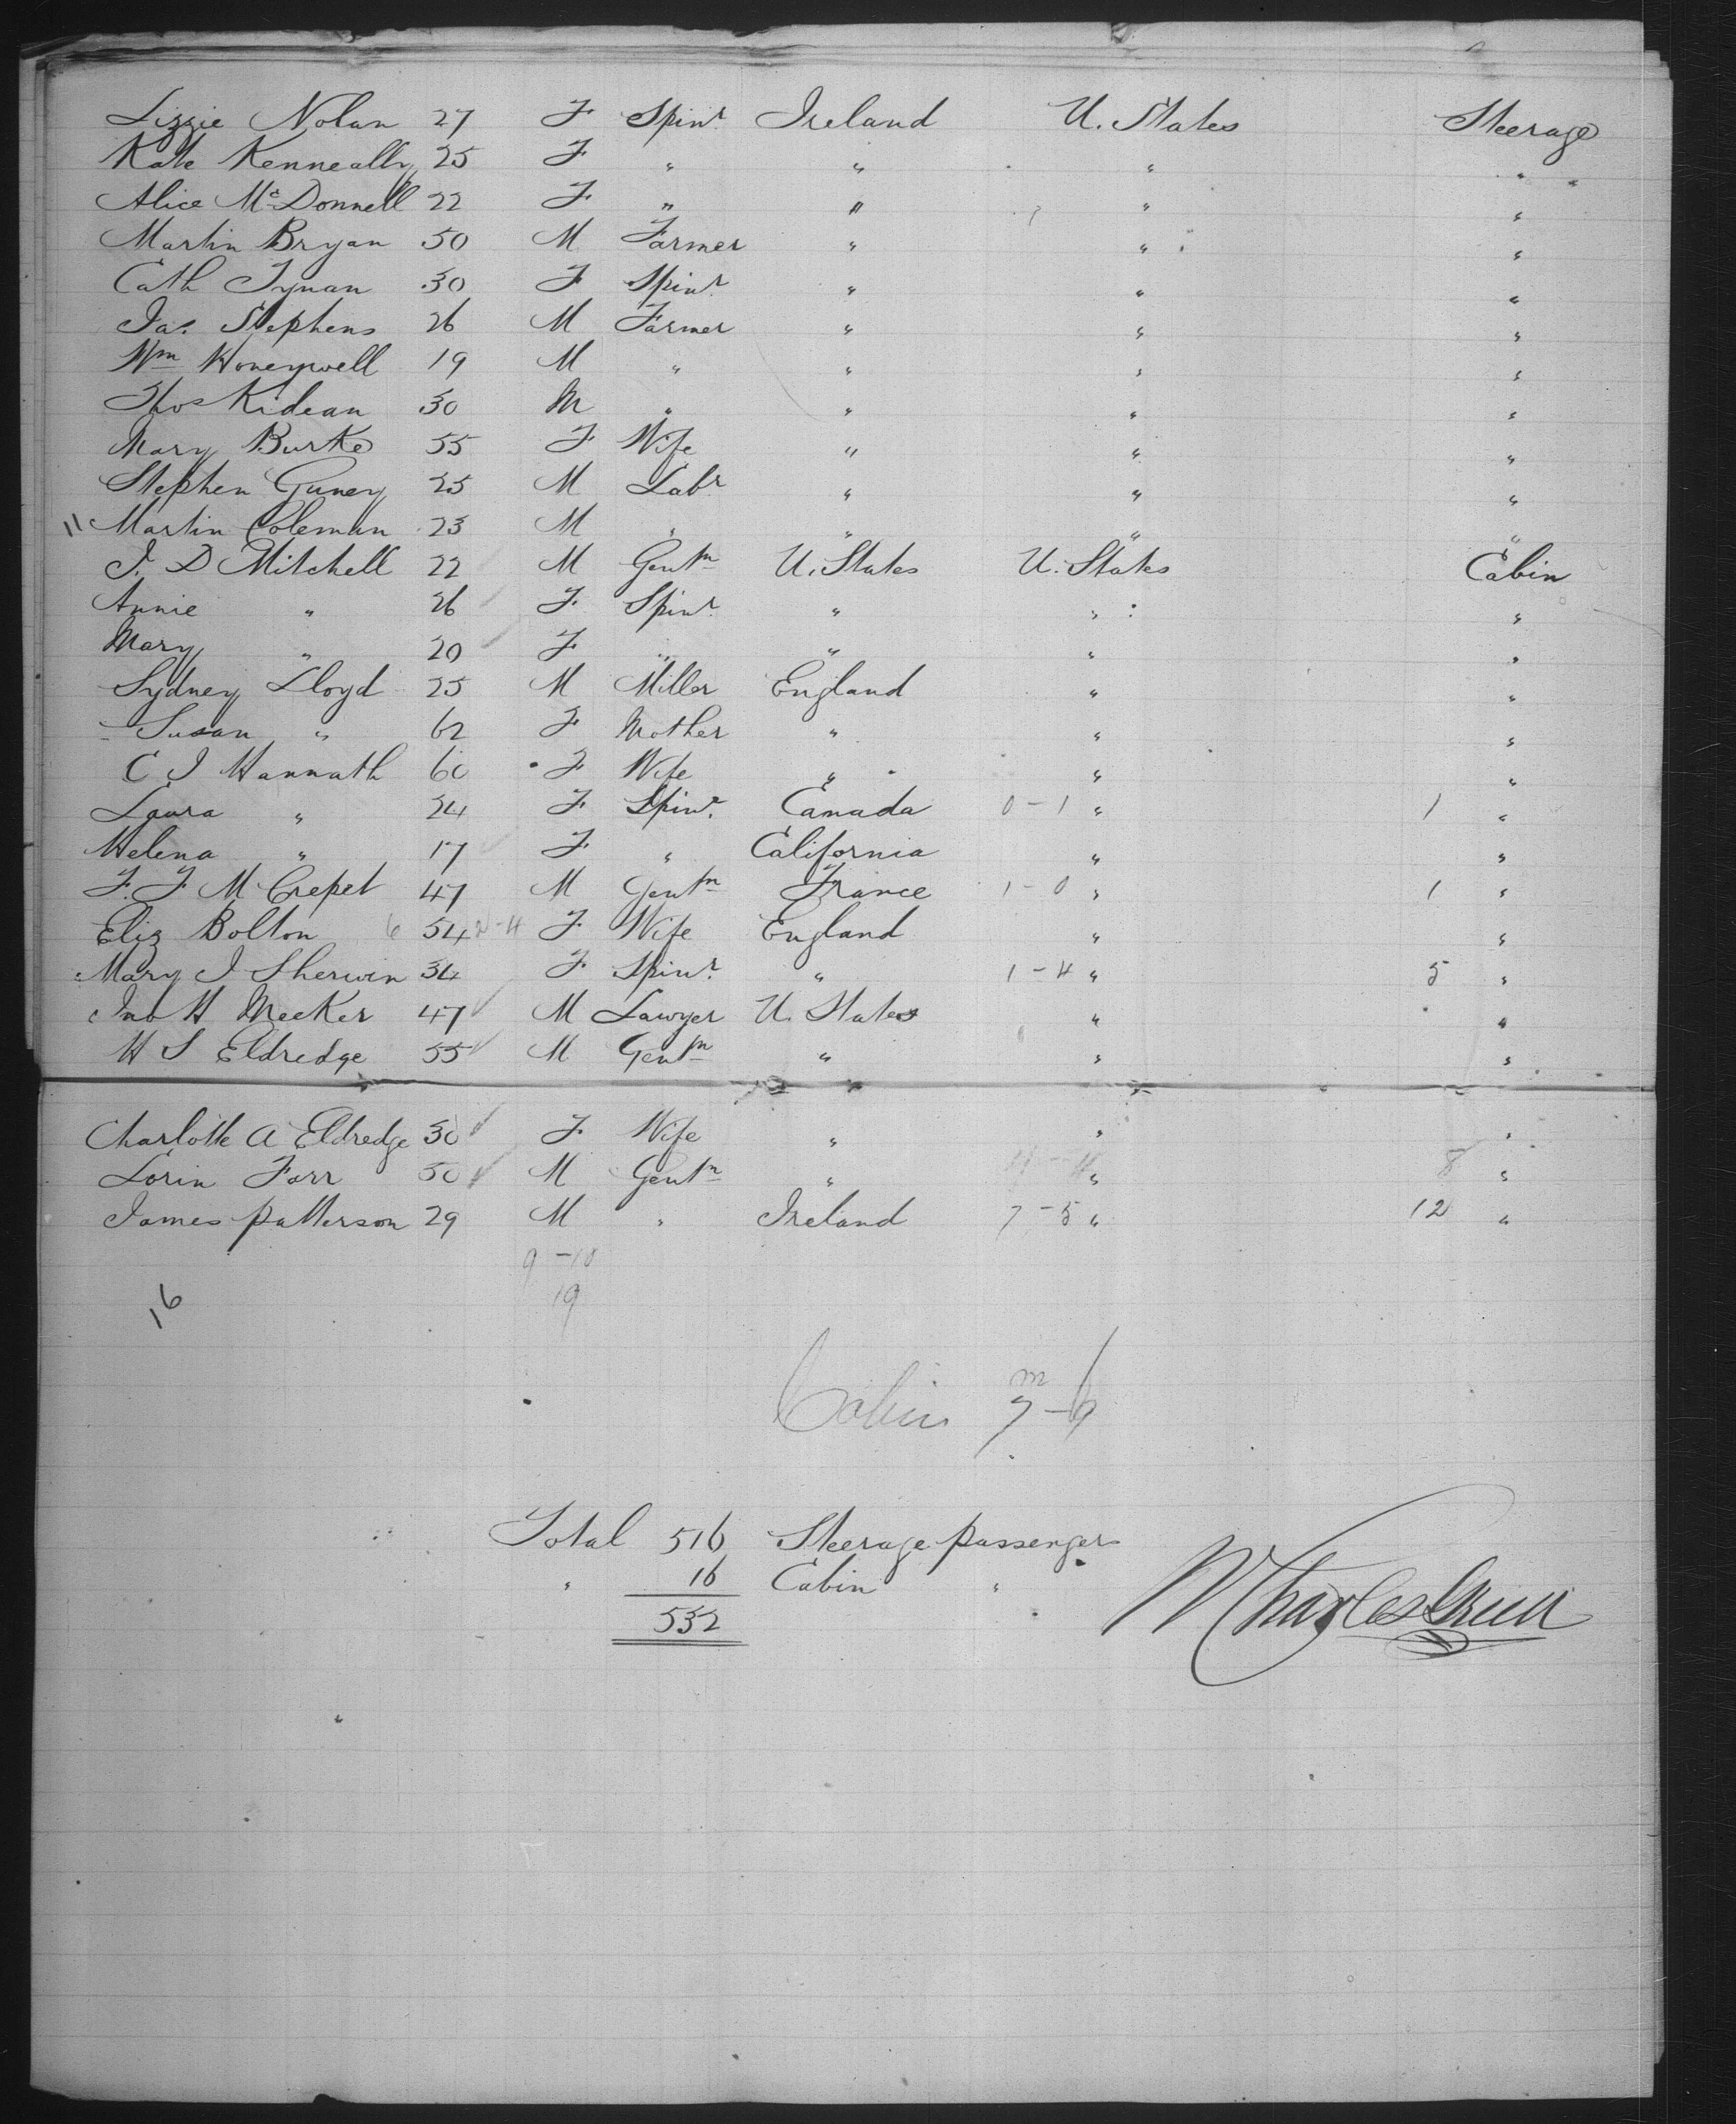 Lizzie Nolan 27 F Spinr. Ireland U. States Steerage
Kate Kenneally 25 F " " " "
Alice McDonnell 22 F " " " "
Martin Bryan 50 M Farmer " " "
Cath Tynan 30 F Spinr. " " "
Jas. Stephens 26 M Farmer " " "
Wm Honeywell 19 M " " " "
Thos Kidean 30 M " " " "
Mary Burke 55 F Wife " " "
Stephen Guney 25 M Labr. " " "
11 Martin Coleman 23 M " " " "
J. D Mitchell 22 M Gentn U. States U. States Cabin
Annie " 26 F Spinr. " " "
Mary " 20 F " " " "
Sydney Lloyd 25 M Miller England " "
Susan " 62 F Mother " " "
C J Hannath 60 F Wife " " "
Laura " 24 F Spinr. Canada 0-1 " 1 "
Helena " 17 F " California " "
F. F M Crepet 47 M Gentn France 1-0 " 1 "
Eliz Bolton 6 54 2-4 F Wife England " "
Mary J Sherwin 34 F Spinr. " 1-4 " 5 "
Jno H Meeker 47 M Lawyer U. States " "
H S Eldredge 55 M Gentn " " "
Charlotte A Eldredge 30 F Wife " " "
Lorin Farr 50 M Gentn " 4-4 " 8 "
James Patterson 29 M " Ireland 7-5 " 12 "
9-10
16 19
Cabin m 7-9
Total 516 Steerage passengers
" 16 Cabin "
532
W Charles Green